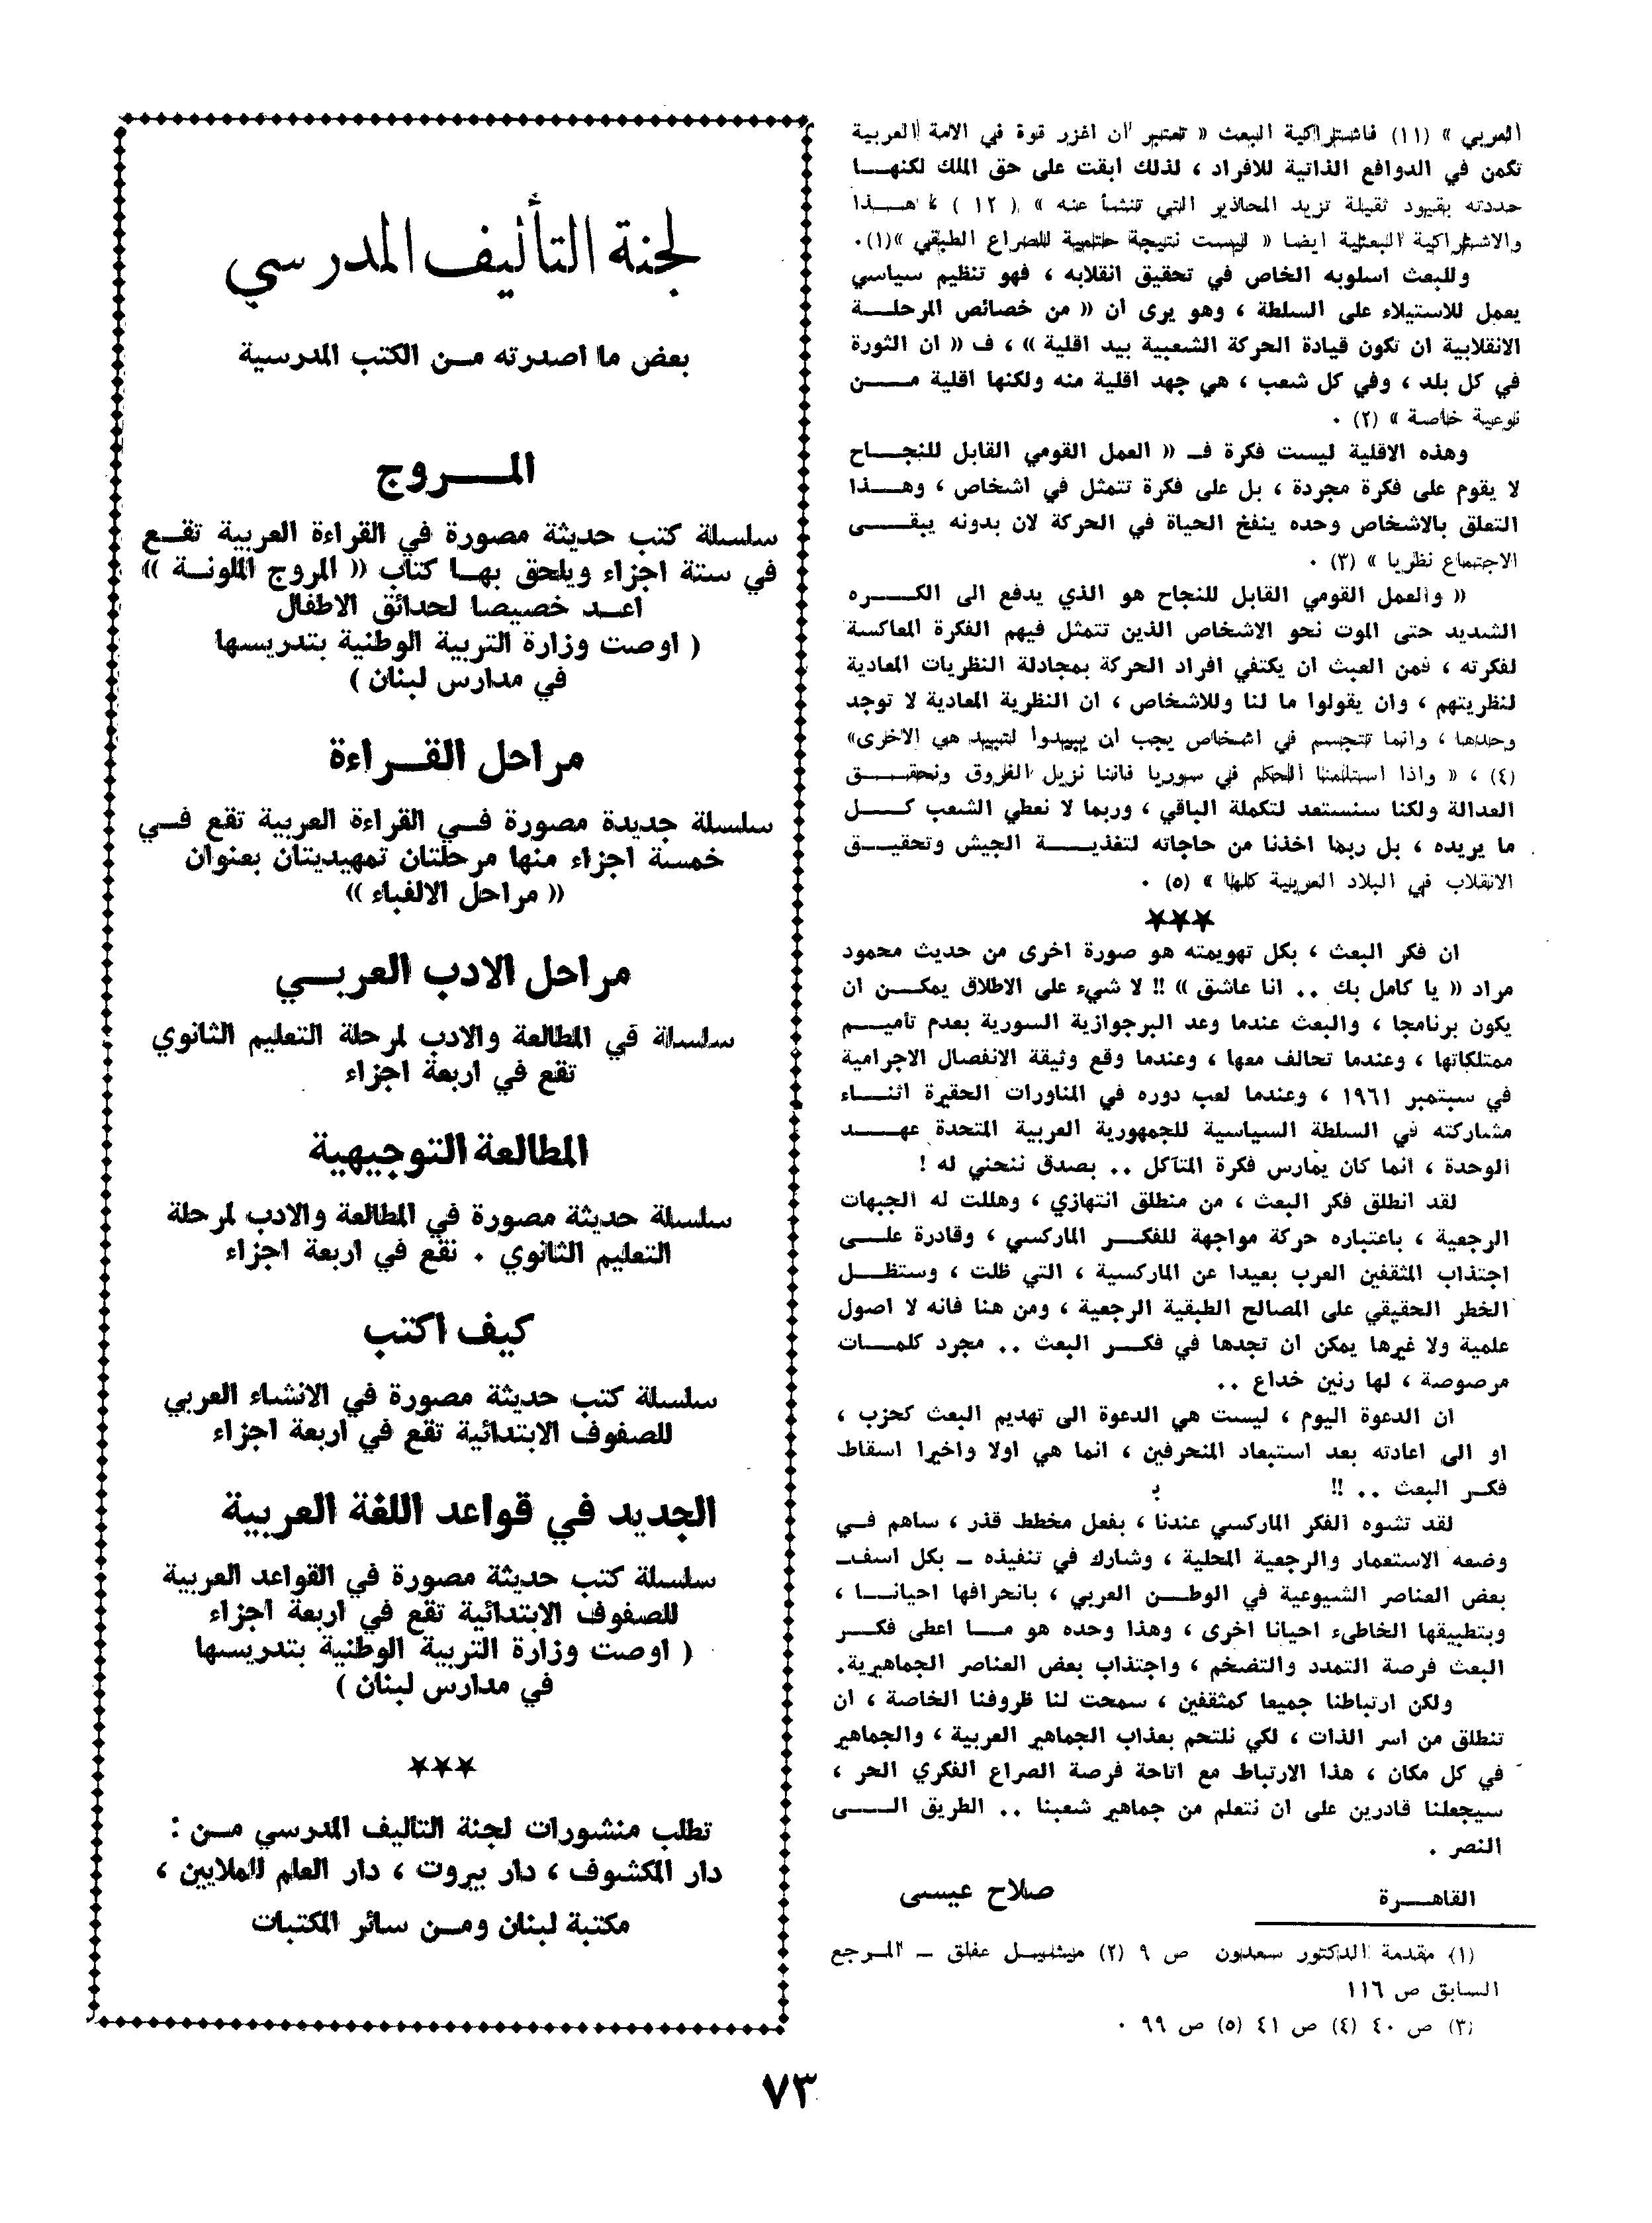 العربي » (١١) فاشتراكية البعث « تعتبر ان اغزر قوة في الامة العربية
تكمن في الدوافع الذاتية للافراد ، لذلك ابقت على حق الملك لكنهـــا
حددته بقيود ثقيلة تزيد المحاذير التي تنشأ عنه » ( ١٢ ) ، هـــذا
والاشتراكية البعثية ايضا « ليست نتيجة حتمية للصراع الطبقي »(١).
وللبعث اسلوبه الخاص في تحقيق انقلابه ، فهو تنظيم سياسي
يعمل للاستيلاء على السلطة ، وهو يرى ان « من خصائص المرحلـــة
الانقلابية ان تكون قيادة الحركة الشعبية بيد اقلية » ، ف « ان الثورة
في كل بلد ، وفي كل شعب ، هي جهد اقلية منه ولكنها اقلية مـــن
نوعية خاصة » (٢) .
وهذه الاقلية ليست فكرة فـ « العمل القومي القابل للنجـــاح
لا يقوم على فكرة مجردة ، بل على فكرة تتمثل في اشخاص ، وهـــذا
التعلق بالاشخاص وحده ينفخ الحياة في الحركة لان بدونه يبقـــى
الاجتماع نظريا » (٣) .
« والعمل القومي القابل للنجاح هو الذي يدفع الى الكـــره
الشديد حتى الموت نحو الاشخاص الذين تتمثل فيهم الفكرة المعاكسة
لفكرته ، فمن العبث ان يكتفي افراد الحركة بمجادلة النظريات المعادية
لنظريتهم ، وان يقولوا ما لنا وللاشخاص ، ان النظرية المعادية لا توجد
وحدها ، وانما تتجسم في اشخاص يجب ان يبيدوا لتبيد هي الاخرى»
(٤) ، « واذا استلمنا الحكم في سوريا فاننا نزيل الفروق ونحقـــق
العدالة ولكنا سنستعد لتكملة الباقي ، وربما لا نعطي الشعب كـــل
ما يريده ، بل ربما اخذنا من حاجاته لتغذيـــة الجيش وتحقيـــق
الانقلاب في البلاد العربية كلها » (٥) .
★★★
ان فكر البعث ، بكل تهويمته هو صورة اخرى من حديث محمود
مراد « يا كامل بك .. انا عاشق » !! لا شيء على الاطلاق يمكـــن ان
يكون برنامجا ، والبعث عندما وعد البرجوازية السورية بعدم تأميـــم
ممتلكاتها ، وعندما تحالف معها ، وعندما وقع وثيقة الانفصال الاجرامية
في سبتمبر ١٩٦١ ، وعندما لعب دوره في المناورات الحقيرة اثنـــاء
مشاركته في السلطة السياسية للجمهورية العربية المتحدة عهـــد
الوحدة ، انما كان يمارس فكرة المتآكل .. بصدق ننحني له !
لقد انطلق فكر البعث ، من منطلق انتهازي ، وهللت له الجبهات
الرجعية ، باعتباره حركة مواجهة للفكـــر الماركسي ، وقادرة علـــى
اجتذاب المثقفين العرب بعيدا عن الماركسية ، التي ظلت ، وستظـــل
الخطر الحقيقي على المصالح الطبقية الرجعية ، ومن هنا فانه لا اصول
علمية ولا غيرها يمكن ان تجدها في فكـــر البعث .. مجرد كلمـــات
مرصوصة ، لها رنين خداع ..
ان الدعوة اليوم ، ليست هي الدعوة الى تهديم البعث كحزب ،
او الى اعادته بعد استبعاد المنحرفين ، انما هي اولا واخيرا اسقاط
فكـر البعث .. !!
لقد تشوه الفكر الماركسي عندنا ، بفعل مخطط قذر ، ساهم فـي
وضعه الاستعمار والرجعية المحلية ، وشارك في تنفيذه ـ بكل اسف ـ
بعض العناصر الشيوعية في الوطـــن العربي ، بانحرافها احيانـــا ،
وبتطبيقها الخاطىء احيانا اخرى ، وهذا وحده هو مـــا اعطى فكـــر
البعث فرصة التمدد والتضخم ، واجتذاب بعض العناصر الجماهيرية.
ولكن ارتباطنا جميعا كمثقفين ، سمحت لنا ظروفنا الخاصة ، ان
تنطلق من اسر الذات ، لكي نلتحم بعذاب الجماهير العربية ، والجماهير
في كل مكان ، هذا الارتباط مع اتاحة فرصة الصراع الفكري الحر ،
سيجعلنا قادرين على ان نتعلم من جماهير شعبنا .. الطريق الـــى
النصر .
القاهـــرة صلاح عيسى
(١) مقدمة الدكتور سعدون ص ٩ (٢) ميشيـــل عفلق ـ المرجع
السابق ص ١١٦
(٣) ص ٤٠ (٤) ص ٤١ (٥) ص ٩٩ .
لجنة التأليف المدرسي
بعض ما اصدرته مـن الكتب المدرسية
المـــروج
سلسلة كتب حديثة مصورة في القراءة العربية تقـــع
في ستة اجزاء ويلحق بهـا كتاب « المروج الملونـة »
اعـد خصيصا لحدائق الاطفال
( اوصت وزارة التربية الوطنية بتدريسها
في مدارس لبنان )
مراحل القـــراءة
سلسلة جديدة مصورة فـي القراءة العربية تقع فـي
خمسة اجزاء منها مرحلتان تمهيديتان بعنوان
« مراحل الالفباء »
مراحل الادب العربـــي
سلسلة في المطالعة والادب لمرحلة التعليم الثانوي
تقع في اربعة اجزاء
المطالعة التوجيهية
سلسلة حديثة مصورة في المطالعة والادب لمرحلة
التعليم الثانوي . تقع في اربعة اجزاء
كيف اكتب
سلسلة كتب حديثة مصورة في الانشاء العربي
للصفوف الابتدائية تقع في اربعة اجزاء
الجديد في قواعد اللغة العربية
سلسلة كتب حديثة مصورة في القواعد العربية
للصفوف الابتدائية تقع في اربعة اجزاء
( اوصت وزارة التربية الوطنية بتدريسها
في مدارس لبنان )
★★★
تطلب منشورات لجنة التاليف المدرسي مـن :
دار المكشوف ، دار بيروت ، دار العلم للملايين ،
مكتبة لبنان ومـن سائر المكتبات
٧٣